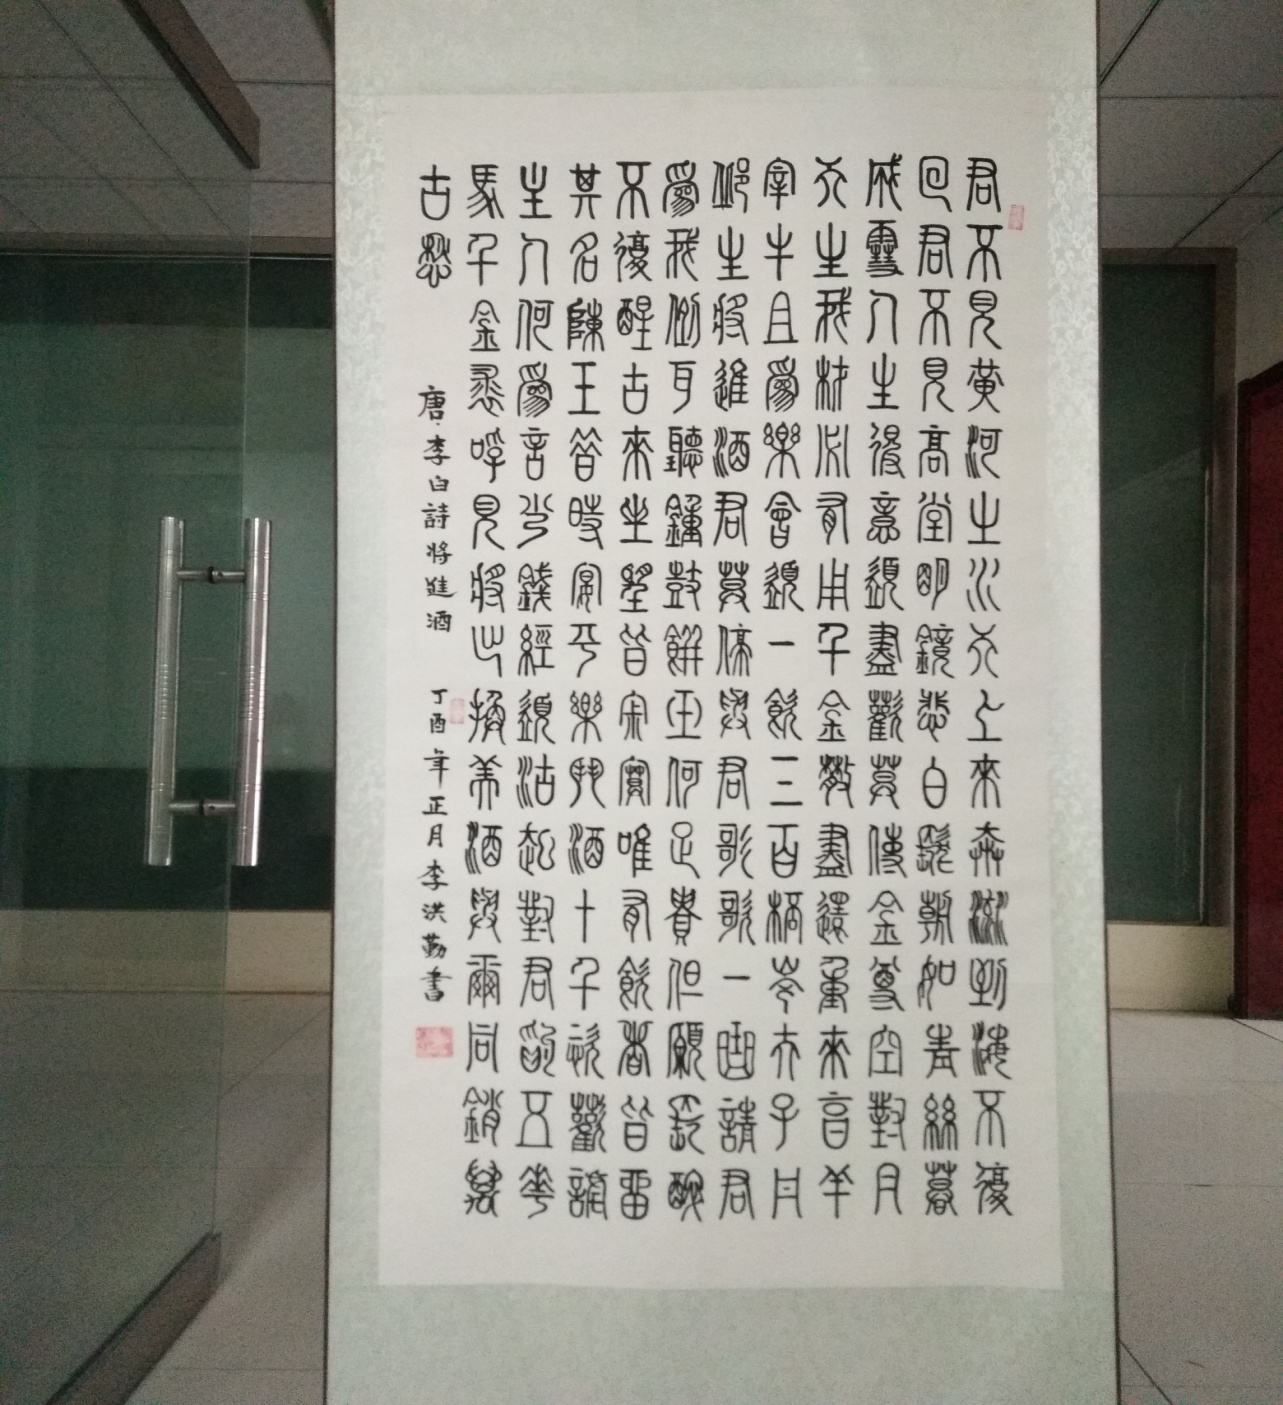 君不見黃河之水天上來奔流到海不復
回君不見高堂明鏡悲白髮朝如青絲暮
成雪人生得意須盡歡莫使金尊空對月
天生我材必有用千金散盡還重來亯羊
宰牛且爲樂會須一飲三百桮岑夫子丹
邱生將進酒君莫停與君歌歌一曲請君
爲我側耳聽鐘鼓饌玉何足貴但願長醉
不復醒古來聖賢皆寂寞唯有飲者皆留
其名陳王昔時宴平樂鬥酒十千恣歡謔
主人何爲言少錢經須沽起對君酌五花
馬千金裘呼兒將出換美酒與爾同銷萬
古愁 唐·李白詩將進酒 丁酉年正月李洪勤書